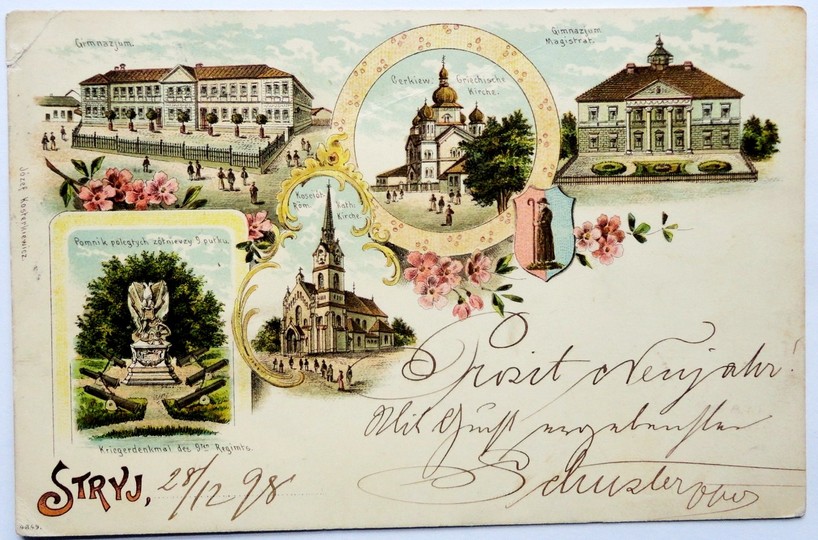 Gimnazjum.
Cerkiew. Griechische
Kirche.
Gimnazjum
Magistrat.
Józef Kosterkiewicz.
Kościół Röm. Kath.
Kirche.
Pomnik poległych żołnierzy 9 pułku.
Kriegerdenkmal des 9ten Regimts.
STRYJ, 28/12 98
Prosit Neujahr!
Mit
ergebenster
Schuster